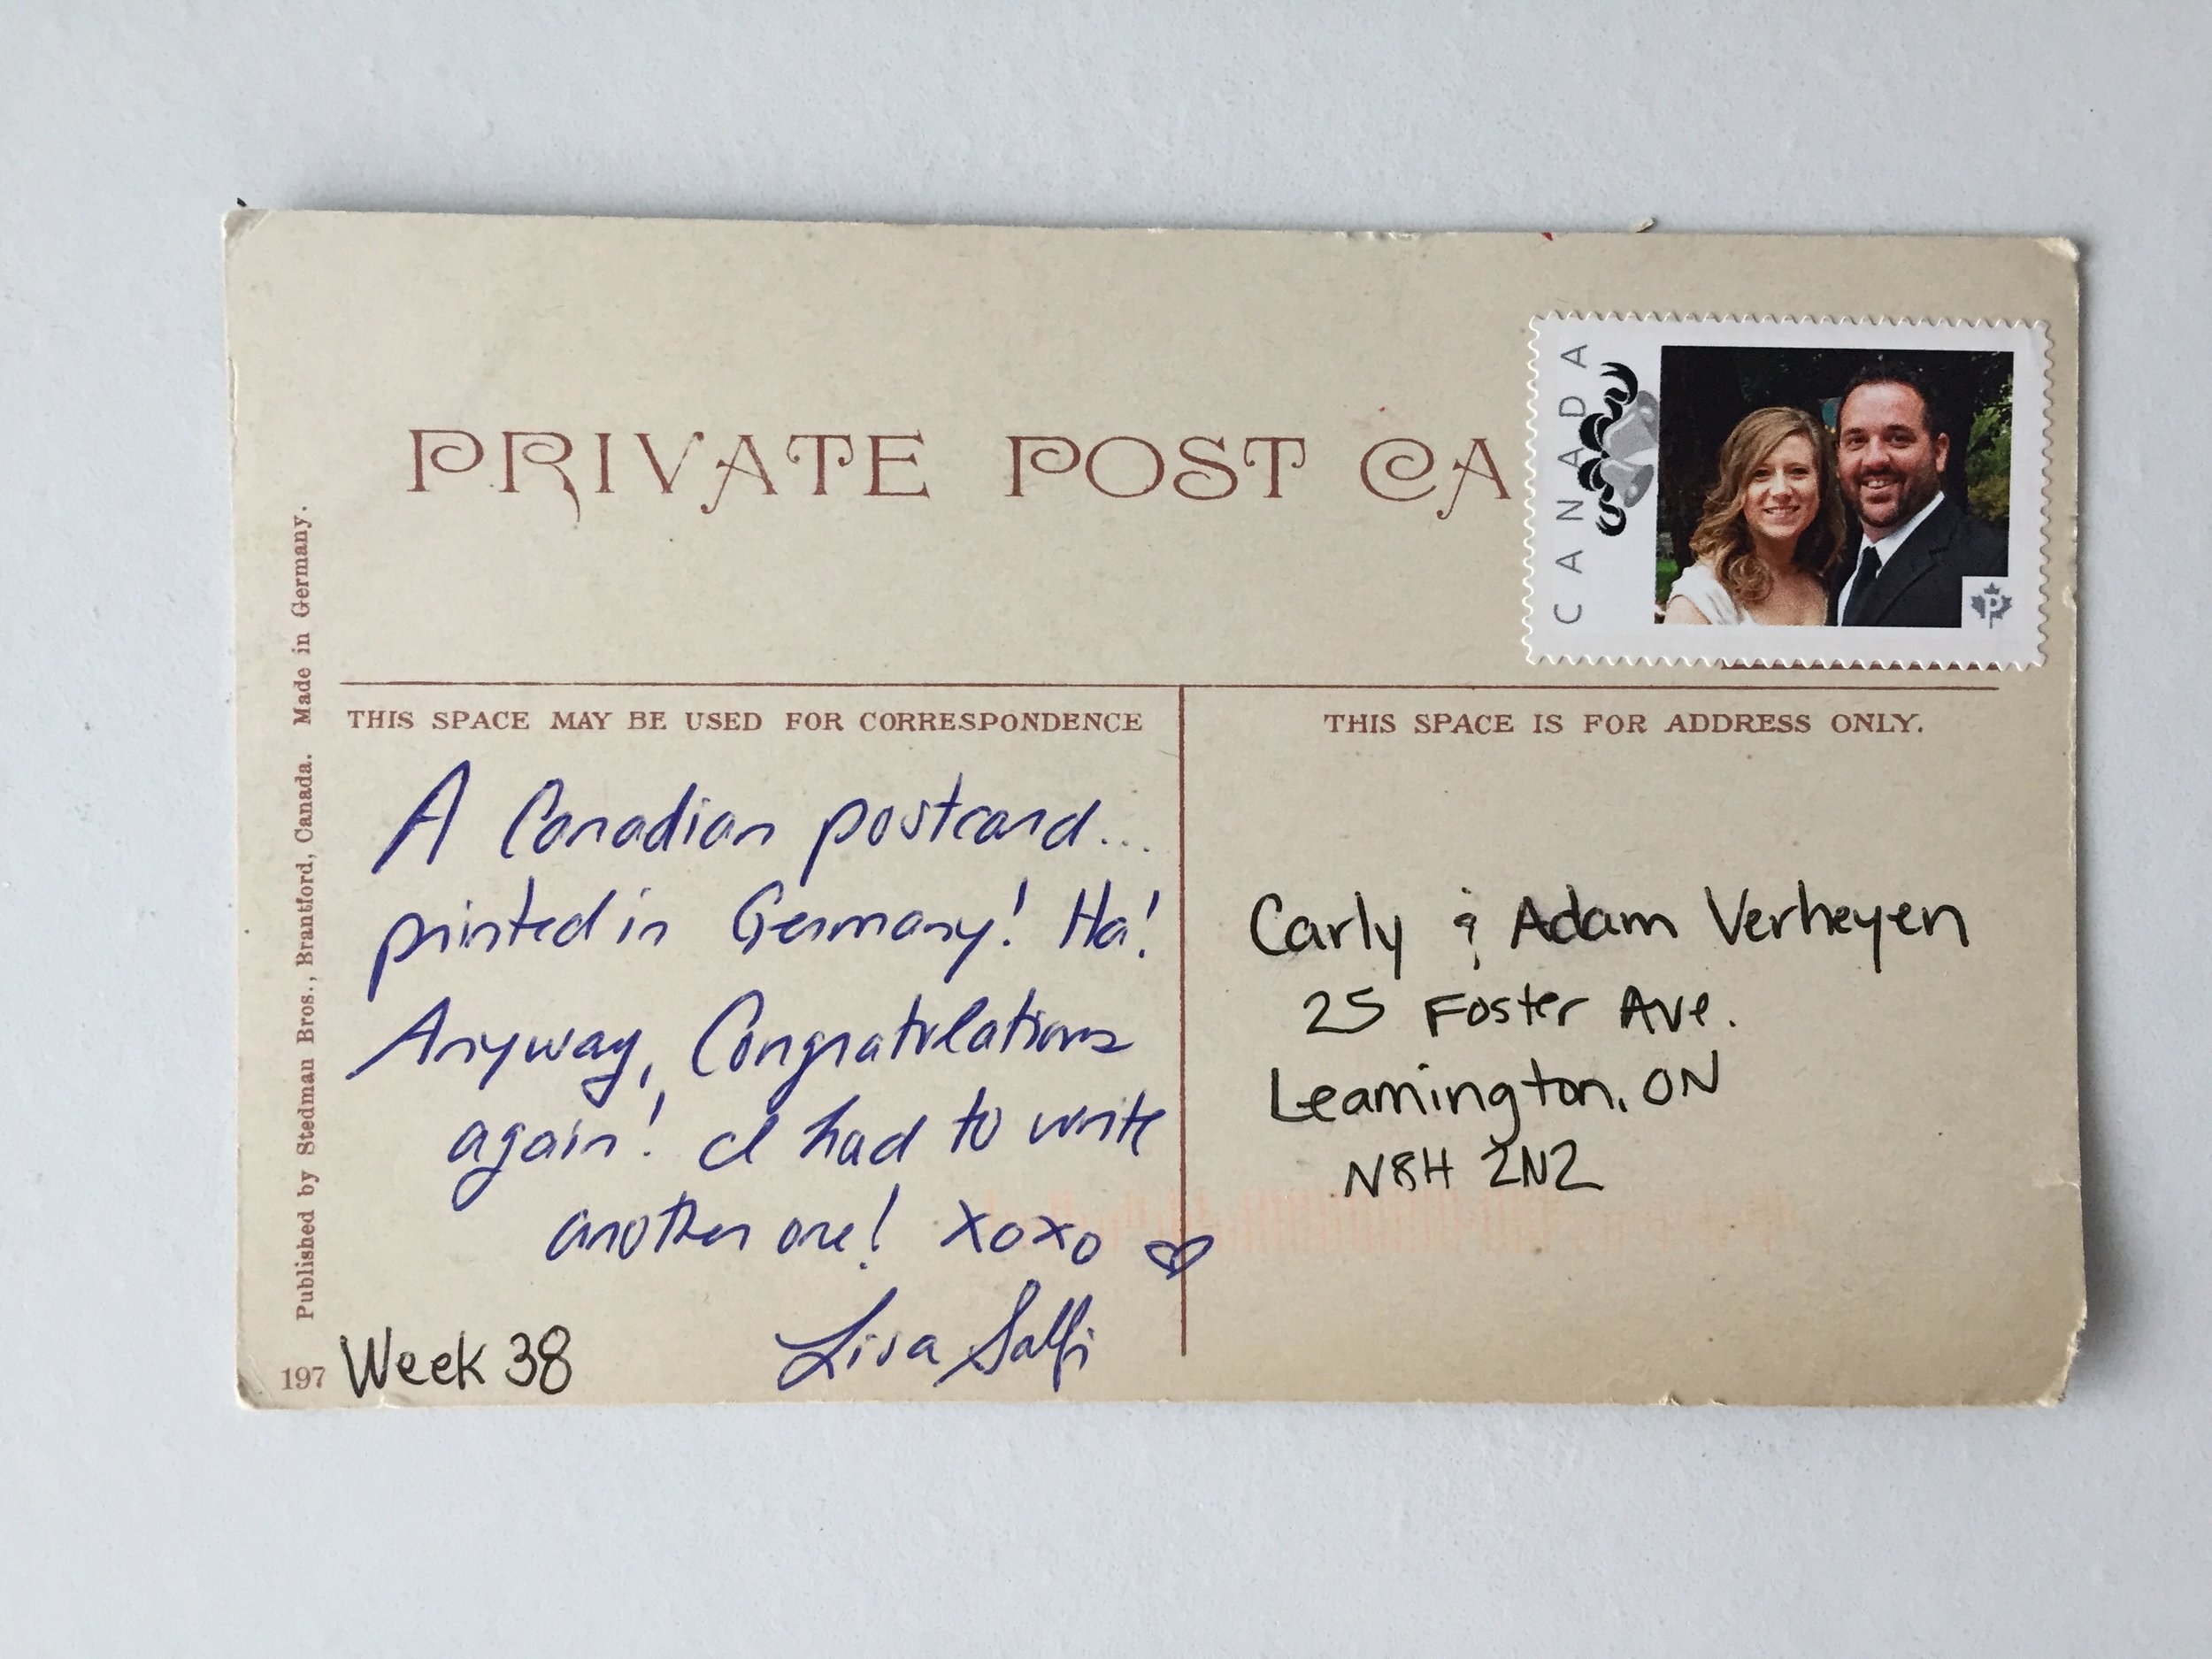 PRIVATE POST CA
CANADA
P
THIS SPACE MAY BE USED FOR CORRESPONDENCE
A Canadian postcard...
printed in Germany! Ha!
Anyway, Congratulations
again! I had to write
another one! xoxo ♡
Lisa Salfi
Week 38
THIS SPACE IS FOR ADDRESS ONLY.
Carly & Adam Verheyen
25 Foster Ave.
Leamington, ON
N8H 2N2
Published by Stedman Bros., Brantford, Canada. Made in Germany.
197